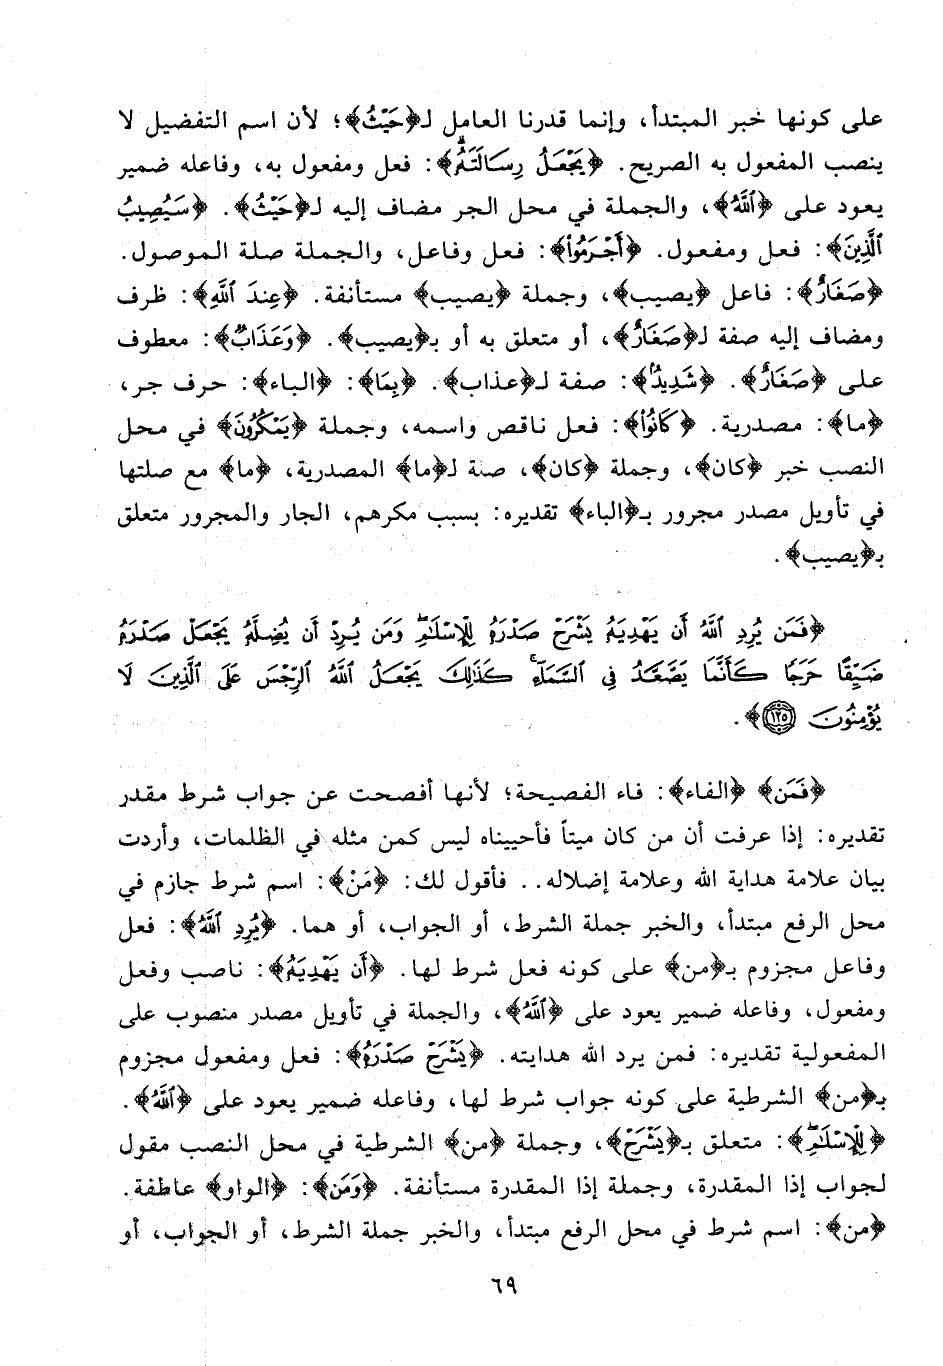 على كونها خبر المبتدأ، وإنما قدرنا العامل لـ﴿حَيْثُ﴾؛ لأن اسم التفضيل لا
ينصب المفعول به الصريح. ﴿يَجْعَلُ رِسَالَتَهُۥ﴾: فعل ومفعول به، وفاعله ضمير
يعود على ﴿ٱللَّهُ﴾، والجملة في محل الجر مضاف إليه لـ﴿حَيْثُ﴾. ﴿سَيُصِيبُ
ٱلَّذِينَ﴾: فعل ومفعول. ﴿أَجْرَمُوا۟﴾: فعل وفاعل، والجملة صلة الموصول.
﴿صَغَارٌ﴾: فاعل ﴿يصيب﴾، وجملة ﴿يصيب﴾ مستأنفة. ﴿عِندَ ٱللَّهِ﴾: ظرف
ومضاف إليه صفة لـ﴿صَغَارٌ﴾، أو متعلق به أو بـ﴿يصيب﴾. ﴿وَعَذَابٌ﴾: معطوف
على ﴿صَغَارٌ﴾. ﴿شَدِيدٌۢ﴾: صفة لـ﴿عذاب﴾. ﴿بِمَا﴾: ﴿الباء﴾: حرف جر،
﴿ما﴾: مصدرية. ﴿كَانُوا۟﴾: فعل ناقص واسمه، وجملة ﴿يَمْكُرُونَ﴾ في محل
النصب خبر ﴿كان﴾، وجملة ﴿كان﴾، صلة لـ﴿ما﴾ المصدرية، ﴿ما﴾ مع صلتها
في تأويل مصدر مجرور بـ﴿الباء﴾ تقديره: بسبب مكرهم، الجار والمجرور متعلق
بـ﴿يصيب﴾.
﴿فَمَن يُرِدِ ٱللَّهُ أَن يَهْدِيَهُۥ يَشْرَحْ صَدْرَهُۥ لِلْإِسْلَٰمِ ۖ وَمَن يُرِدْ أَن يُضِلَّهُۥ يَجْعَلْ صَدْرَهُۥ
ضَيِّقًا حَرَجًا كَأَنَّمَا يَصَّعَّدُ فِى ٱلسَّمَآءِ ۚ كَذَٰلِكَ يَجْعَلُ ٱللَّهُ ٱلرِّجْسَ عَلَى ٱلَّذِينَ لَا
يُؤْمِنُونَ ١٢٥﴾.
﴿فَمَن﴾ ﴿الفاء﴾: فاء الفصيحة؛ لأنها أفصحت عن جواب شرط مقدر
تقديره: إذا عرفت أن من كان ميتاً فأحييناه ليس كمن مثله في الظلمات، وأردت
بيان علامة هداية الله وعلامة إضلاله.. فأقول لك: ﴿مَنْ﴾: اسم شرط جازم في
محل الرفع مبتدأ، والخبر جملة الشرط، أو الجواب، أو هما. ﴿يُرِدِ ٱللَّهُ﴾: فعل
وفاعل مجزوم بـ﴿من﴾ على كونه فعل شرط لها. ﴿أَن يَهْدِيَهُۥ﴾: ناصب وفعل
ومفعول، وفاعله ضمير يعود على ﴿ٱللَّهُ﴾، والجملة في تأويل مصدر منصوب على
المفعولية تقديره: فمن يرد الله هدايته. ﴿يَشْرَحْ صَدْرَهُۥ﴾: فعل ومفعول مجزوم
بـ﴿من﴾ الشرطية على كونه جواب شرط لها، وفاعله ضمير يعود على ﴿ٱللَّهُ﴾.
﴿لِلْإِسْلَٰمِ ۖ﴾: متعلق بـ﴿يَشْرَحْ﴾، وجملة ﴿من﴾ الشرطية في محل النصب مقول
لجواب إذا المقدرة، وجملة إذا المقدرة مستأنفة. ﴿وَمَن﴾: ﴿الواو﴾ عاطفة.
﴿من﴾: اسم شرط في محل الرفع مبتدأ، والخبر جملة الشرط، أو الجواب، أو
٦٩